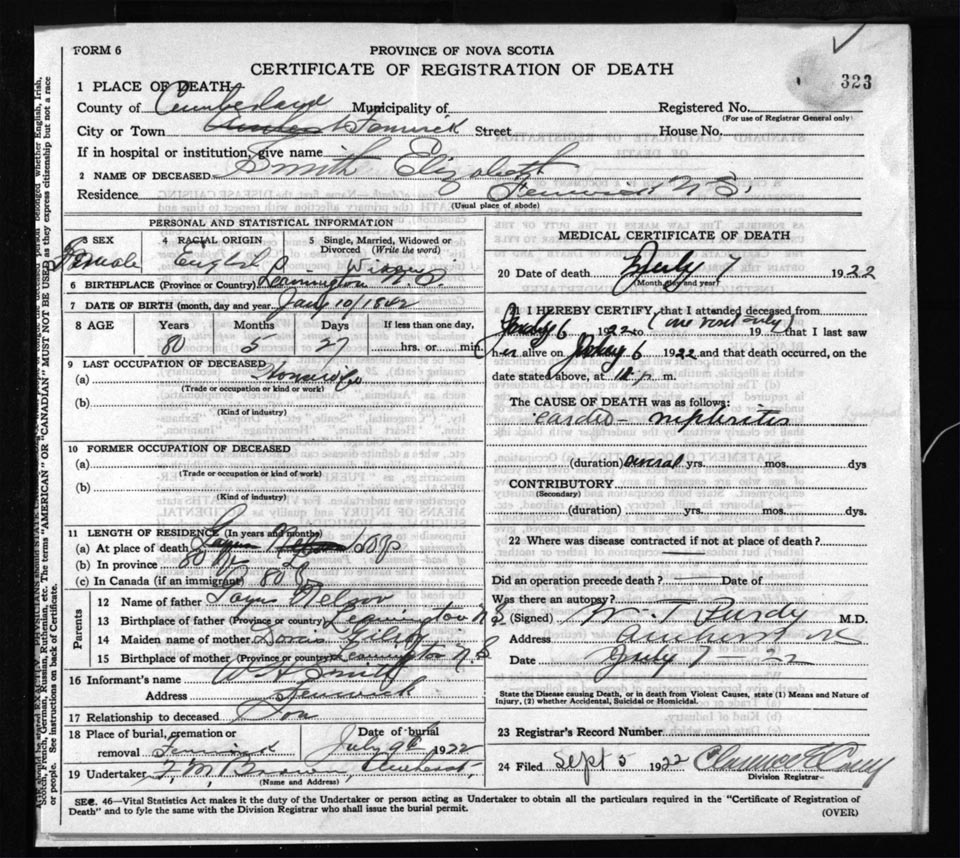 FORM 6
PROVINCE OF NOVA SCOTIA
CERTIFICATE OF REGISTRATION OF DEATH
323
1 PLACE OF DEATH
County of Cumberland Municipality of Registered No.
(For use of Registrar General only)
City or Town Amherst Fenwick Street House No.
If in hospital or institution, give name
2 NAME OF DECEASED Smith Elizabeth
Residence Fenwick N.S.
(Usual place of abode)
PERSONAL AND STATISTICAL INFORMATION
3 SEX 4 RACIAL ORIGIN 5 Single, Married, Widowed or Divorced (Write the word)
Female English Widow
6 BIRTHPLACE (Province or Country) Leamington N.S.
7 DATE OF BIRTH (month, day and year) Jany 10/1842
8 AGE Years Months Days If less than one day,
80 5 27 hrs. or min.
9 LAST OCCUPATION OF DECEASED
(a) Housewife
(Trade or occupation or kind or work)
(b)
(Kind of industry)
10 FORMER OCCUPATION OF DECEASED
(a)
(Trade or occupation or kind of work)
(b)
(Kind of industry)
11 LENGTH OF RESIDENCE (In years and months)
(a) At place of death
(b) In province 80
(c) In Canada (if an immigrant) 80
Parents
12 Name of father Nelson
13 Birthplace of father (Province or country) Leamington N.S.
14 Maiden name of mother
15 Birthplace of mother (Province or country) Leamington N.S
16 Informant's name W A Smith
Address Fenwick
17 Relationship to deceased Son
18 Place of burial, cremation or removal Fenwick Date of burial July 9th 1922
19 Undertaker F. M. Brown, Amherst,
(Name and Address)
MEDICAL CERTIFICATE OF DEATH
20 Date of death July 7 1922
(Month, day and year)
21 I HEREBY CERTIFY, that I attended deceased from
July 6 1922 to (one visit only) 19 that I last saw
her alive on July 6 1922 and that death occurred, on the
date stated above, at m.
The CAUSE OF DEATH was as follows:
cardio - nephritis
(duration) several yrs. mos. dys
CONTRIBUTORY
(Secondary)
(duration) yrs. mos. dys
22 Where was disease contracted if not at place of death?
Did an operation precede death? — Date of
Was there an autopsy?
(Signed) W. T. Purdy M.D.
Address Amherst N.S
Date July 7 - 22
State the Disease causing Death, or in death from Violent Causes, state (1) Means and Nature of
Injury, (2) whether Accidental, Suicidal or Homicidal.
23 Registrar's Record Number
24 Filed Sept 5 1922
Division Registrar
SEC. 46—Vital Statistics Act makes it the duty of the Undertaker or person acting as Undertaker to obtain all the particulars required in the "Certificate of Registration of
Death" and to fyle the same with the Division Registrar who shall issue the burial permit.
(OVER)